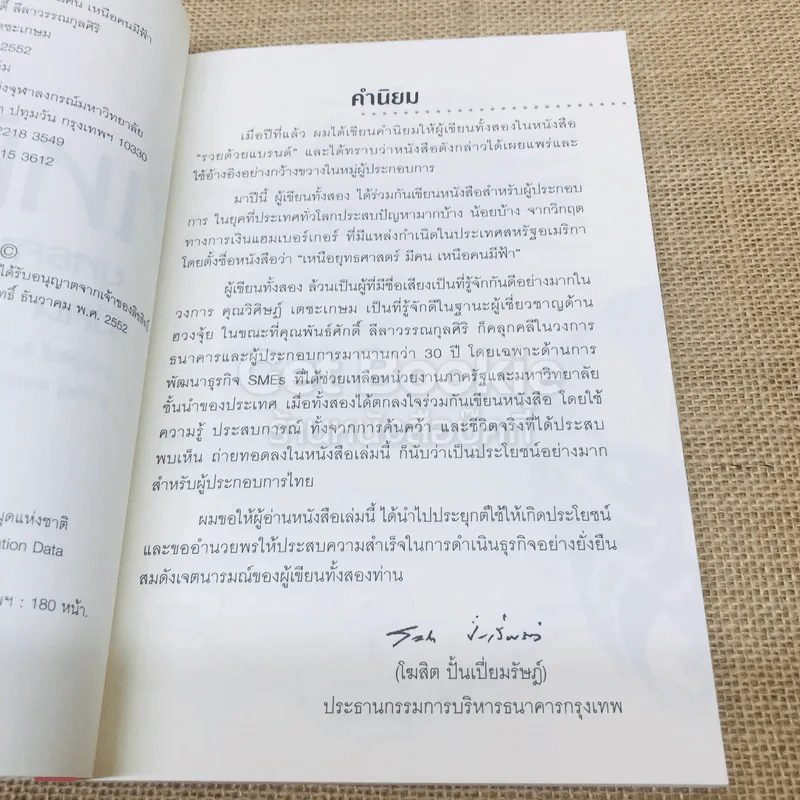 คน เหนือคนมีฟ้า
ดิ์ ลีลาวรรณกุลศิริ
ตชะเกษม
2552
งจุฬาลงกรณ์มหาวิทยาลัย
ต ปทุมวัน กรุงเทพฯ 10330
2218 3549
15 3612
©
ได้รับอนุญาตจากเจ้าของลิขสิทธิ์
ทธิ์ ธันวาคม พ.ศ. 2552
มุดแห่งชาติ
ation Data
พฯ : 180 หน้า.
คำนิยม
เมื่อปีที่แล้ว ผมได้เขียนคำนิยมให้ผู้เขียนทั้งสองในหนังสือ
“รวยด้วยแบรนด์” และได้ทราบว่าหนังสือดังกล่าวได้เผยแพร่และ
ใช้อ้างอิงอย่างกว้างขวางในหมู่ผู้ประกอบการ
มาปีนี้ ผู้เขียนทั้งสอง ได้ร่วมกันเขียนหนังสือสำหรับผู้ประกอบ
การ ในยุคที่ประเทศทั่วโลกประสบปัญหามากบ้าง น้อยบ้าง จากวิกฤต
ทางการเงินแฮมเบอร์เกอร์ ที่มีแหล่งกำเนิดในประเทศสหรัฐอเมริกา
โดยตั้งชื่อหนังสือว่า “เหนือยุทธศาสตร์ มีคน เหนือคนมีฟ้า”
ผู้เขียนทั้งสอง ล้วนเป็นผู้ที่มีชื่อเสียงเป็นที่รู้จักกันดีอย่างมากใน
วงการ คุณวิศิษฎ์ เตชะเกษม เป็นที่รู้จักดีในฐานะผู้เชี่ยวชาญด้าน
ฮวงจุ้ย ในขณะที่คุณพันธ์ศักดิ์ ลีลาวรรณกุลศิริ ก็คลุกคลีในวงการ
ธนาคารและผู้ประกอบการมานานกว่า 30 ปี โดยเฉพาะด้านการ
พัฒนาธุรกิจ SMEs ที่ได้ช่วยเหลือหน่วยงานภาครัฐและมหาวิทยาลัย
ชั้นนำของประเทศ เมื่อทั้งสองได้ตกลงใจร่วมกันเขียนหนังสือ โดยใช้
ความรู้ ประสบการณ์ ทั้งจากการค้นคว้า และชีวิตจริงที่ได้ประสบ
พบเห็น ถ่ายทอดลงในหนังสือเล่มนี้ ก็นับว่าเป็นประโยชน์อย่างมาก
สำหรับผู้ประกอบการไทย
ผมขอให้ผู้อ่านหนังสือเล่มนี้ ได้นำไปประยุกต์ใช้ให้เกิดประโยชน์
และขออำนวยพรให้ประสบความสำเร็จในการดำเนินธุรกิจอย่างยั่งยืน
สมดังเจตนารมณ์ของผู้เขียนทั้งสองท่าน
(โฆสิต ปั้นเปี่ยมรัษฎ์)
ประธานกรรมการบริหารธนาคารกรุงเทพ